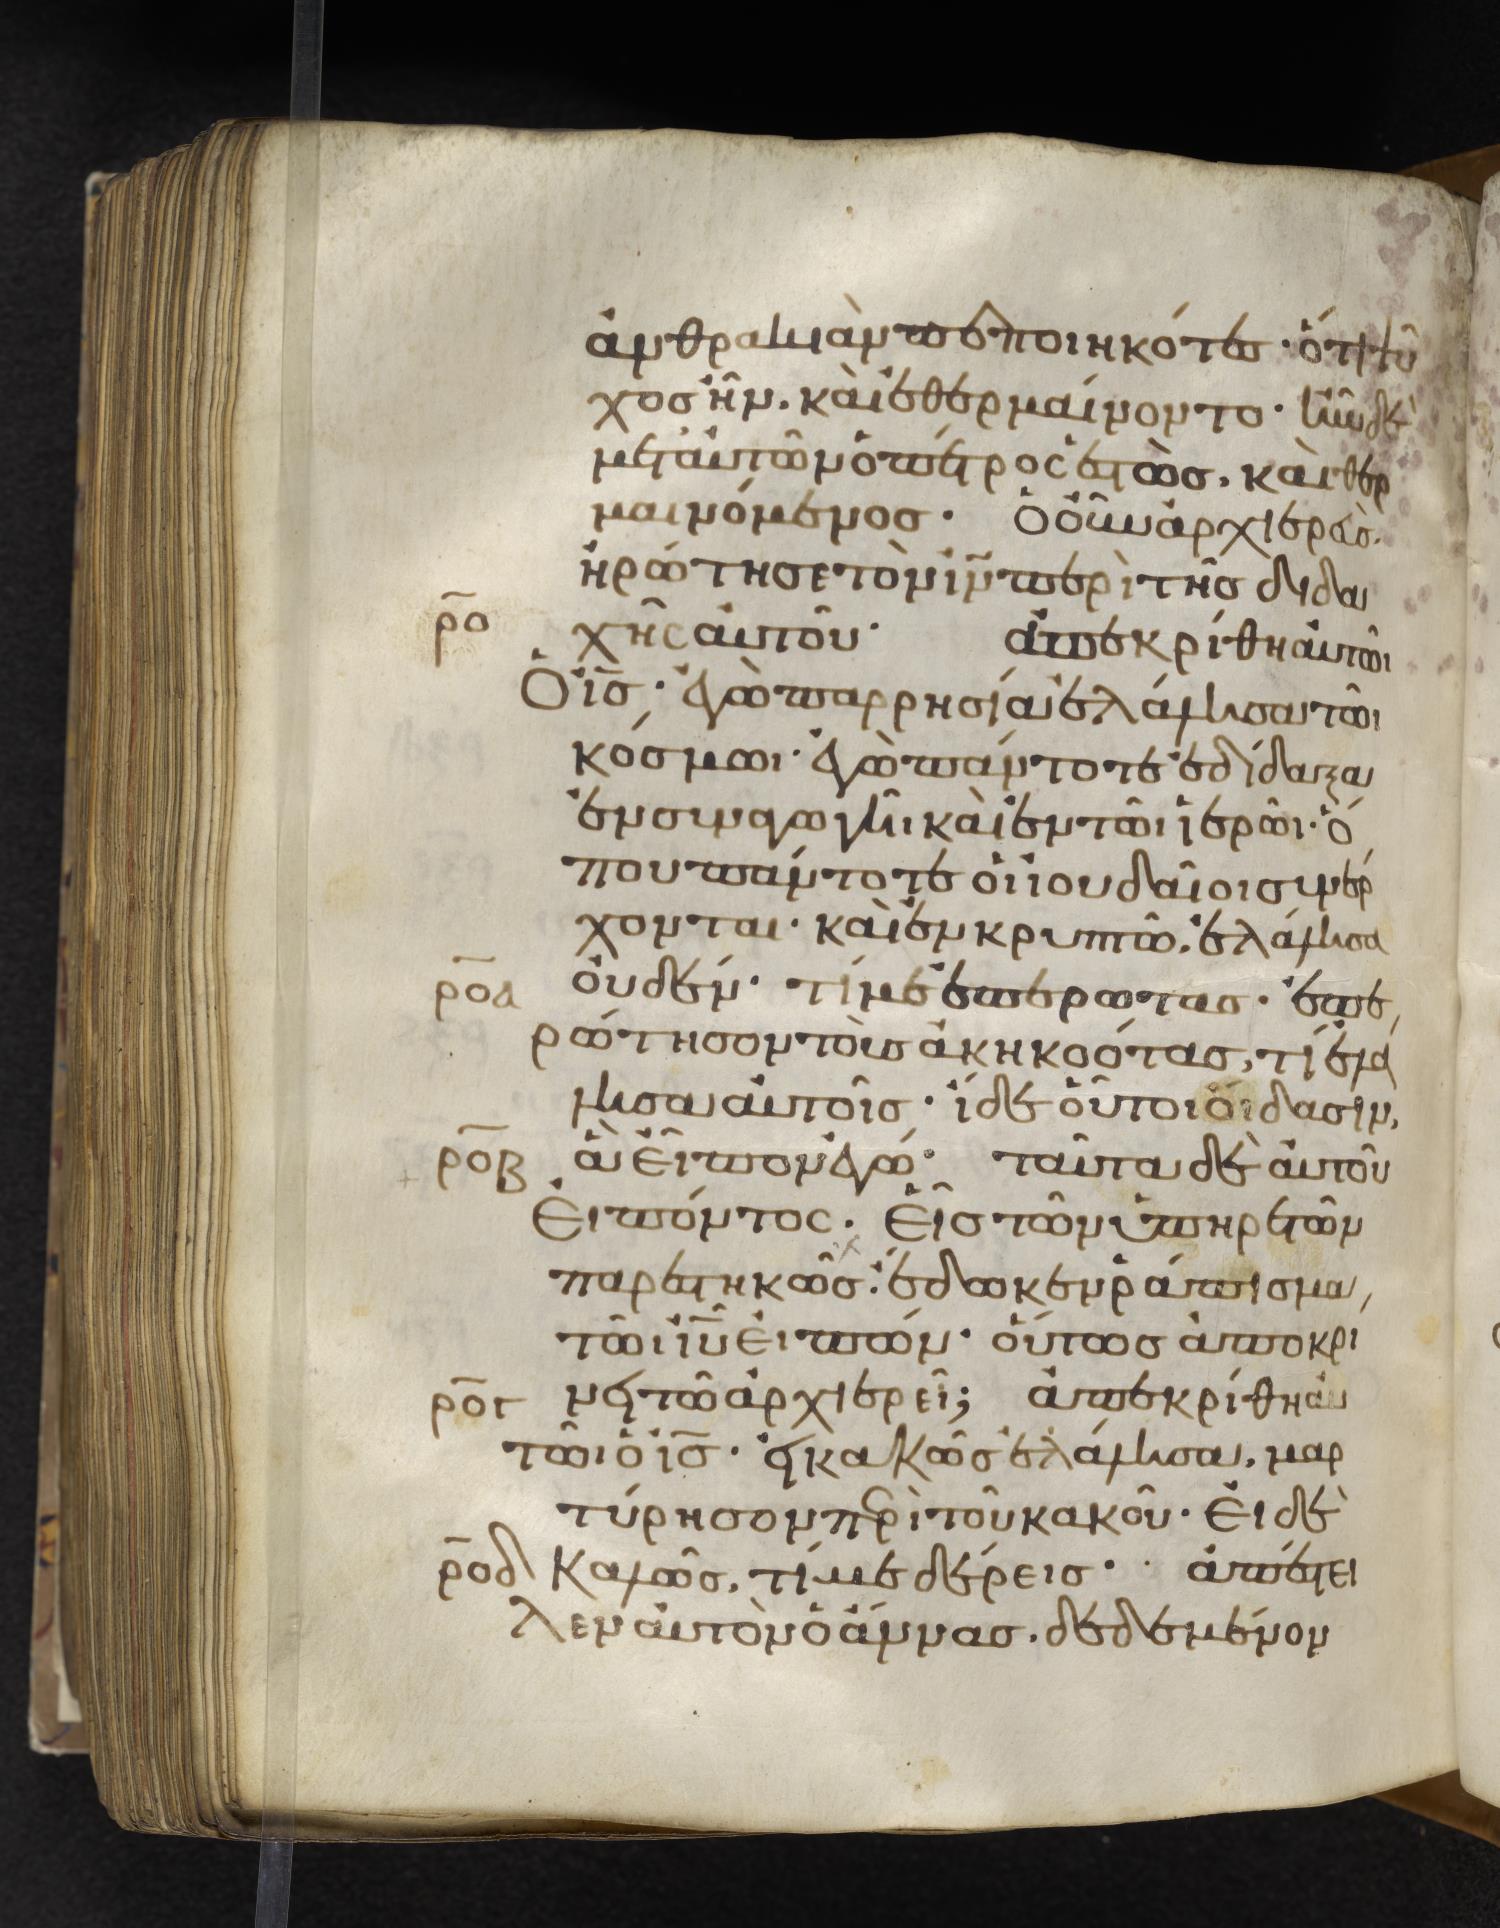 ἀνθρακιὰν πεποιηκότες· ὅτι ψῦ
χος ἦν. καὶ ἐθερμαίνοντο· ἦν δὲ
μετ' αὐτῶν ὁ πέτρος ἑστὼς. καὶ θερ
μαινόμενος· Ὁ οὖν ἀρχιερεὺς.
ἠρώτησε τὸν ιν̅ περὶ τῆς διδα
ρο̅ χῆς αὐτοῦ· ἀπεκρίθη αὐτῶι
Ὁ ις̅· ἐγὼ παρρησία ἐλάλησα τῶι
κόσμωι· ἐγὼ πάντοτε ἐδίδαξα
ἐν συναγωγῆι καὶ ἐν τῶι ἱερῶι· ὅ
που πάντοτε οἱ ἰουδαῖοι συνέρ
χονται· καὶ ἐν κρυπτῶ. ἐλάλησα
ροα̅ οὐδέν· τί με ἐπερωτας· ἐπε
ρώτησον τοὺς ἀκηκοότας, τί ἐλά
λησα αὐτοῖς· ἴδε οὗτοι οἴδασιν,
ροβ̅ ἃ εἶπον ἐγώ· ταῦτα δὲ αὐτοῦ
Εἰπόντος. Εἷς τῶν ὑπηρετῶν
παρεστηκῶς· ἔδωκεν ῥάπισμα,
τῶι ιυ̅ εἰπών· οὕτως ἀποκρί
ρογ̅ νη τῶ ἀρχιερεῖ; ἀπεκρίθη αὐ
τῶι ὁ ις̅· εἰ κακῶς ἐλάλησα, μαρ
τύρησον περὶ τοῦ κακοῦ· Εἰ δὲ
ροδ̅ καλῶς, τί με δέρεις· ἀπέστει
λεν αὐτὸν ὁ ἄννας. δεδεμένον